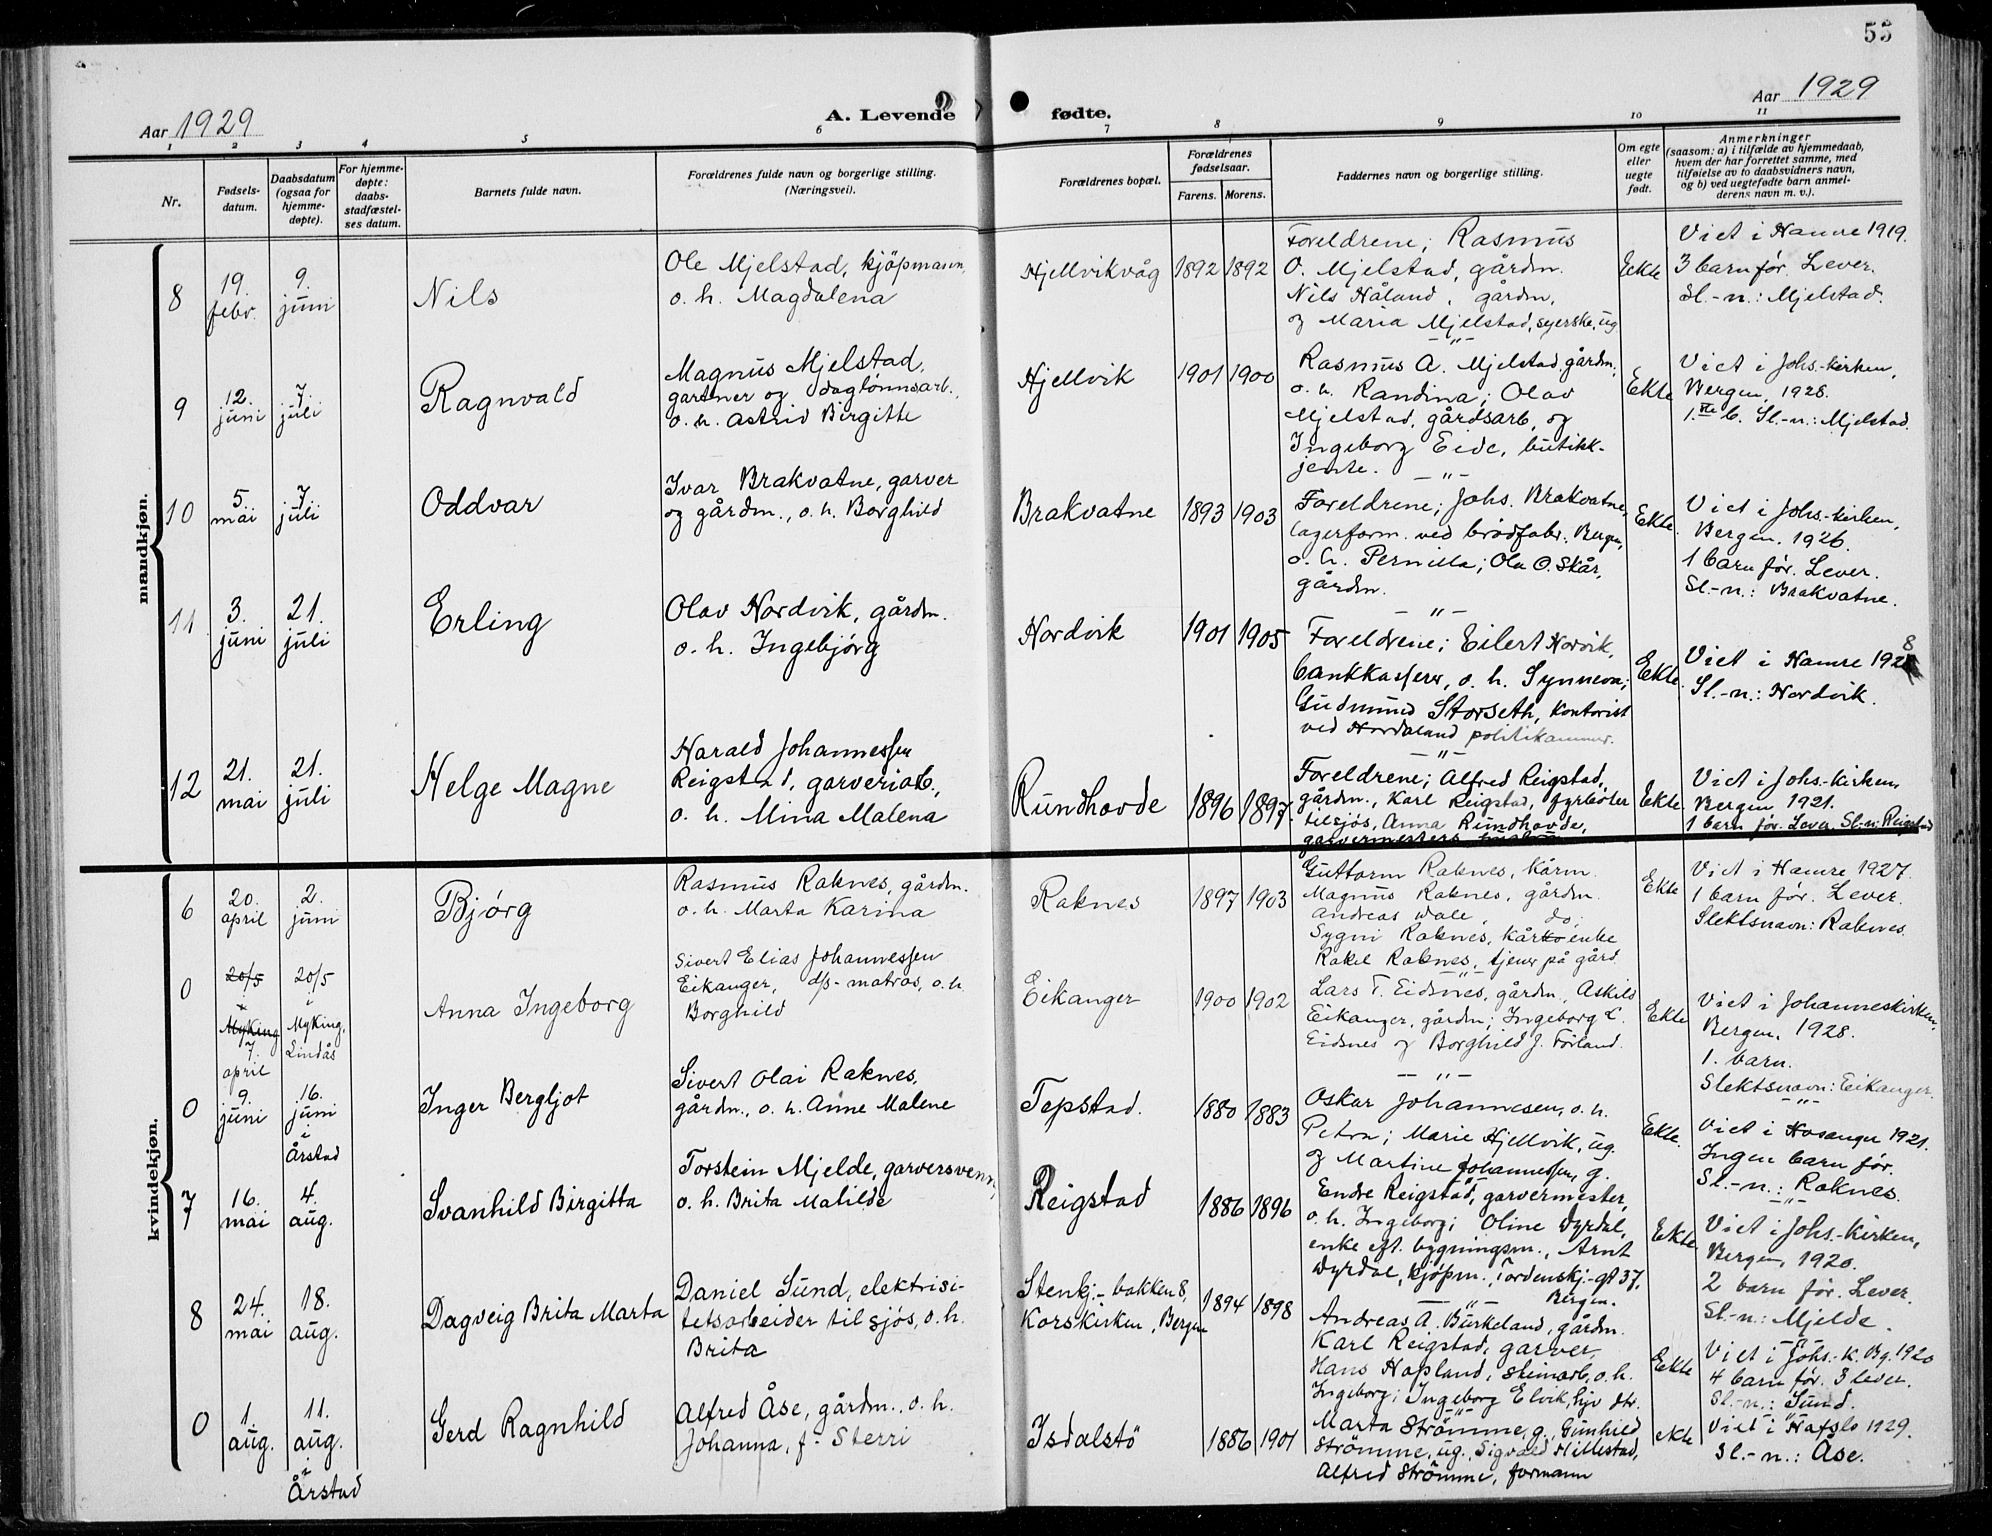 53
Aar 1929
A. Levende fødte.
Aar 1929
1 2 3 4 5 6 7 8 9 10 11
Nr.
Fødsels-
datum.
Daabsdatum
(ogsaa for
hjemme-
døpte).
For hjemme-
døpte:
daabs-
stadfæstel-
ses datum.
Barnets fulde navn.
Forældrenes fulde navn og borgerlige stilling.
(Næringsvei).
Forældrenes bopæl.
Forældrenes
fødselsaar.
Farens. Morens.
Faddernes navn og borgerlige stilling.
Om egte
eller
uegte
født.
Anmerkninger
(saasom: a) i tilfælde av hjemmedaab,
hvem der har forrettet samme, med
tilføielse av to daabsvidners navn,
og b) ved uegtefødte barn anmel-
derens navn m. v.).
mandkjøn.
8
19.
febr.
9.
juni
Nils
Ole Mjelstad, kjöpmann,
o. h. Magdalena
Hjellvikvåg
1892 1892
Foreldrene; Rasmus
O. Mjelstad, gårdm.
Nils Håland, gårdm,
og Maria Mjelstad, syerske, ug
Ekte
Viet i Hamre 1919.
3 barn før. Lever.
Sl.-n.: Mjelstad.
9
12.
juni
7.
juli
Ragnvald
Magnus Mjelstad,
gartner og daglønnsarb.,
o. h. Astrid Birgitte
Hjellvik
1901 1900
Rasmus A. Mjelstad, gårdm,
o. h. Randina; Olav
Mjelstad, gårdsarb, og
Ingeborg Eide, butikk-
jente.
Ekte
Viet i Johs.-kirken,
Bergen, 1928.
1.ste b. Sl.-n.: Mjelstad.
10
5
mai
7
juli
Oddvar
Ivar Brakvatne, garver
og gårdm., o. h. Borghild
Brakvatne
1893 1903
Foreldrene; Johs. Brakvatne,
lagerform. ved brødfabr. Bergen,
o. h. Pernilla; Ola O. Skår,
gårdm.
Ekte
Viet i Johs.-kirken,
Bergen, 1926.
1 barn før. Lever.
Sl.-n.: Brakvatne.
11
3.
juni
21.
juli
Erling
Olav Nordvik, gårdm.
o. h. Ingebjörg
Nordvik
1901 1905
Foreldrene; Eilert Norvik,
bankkasserer, o. h. Synneva;
Gudmund Storseth, kontorist
ved Hordaland politikammer.
Ekte.
Viet i Hamre 1928
Sl.-n.: Nordvik.
12
21.
mai
21.
juli
Helge Magne
Harald Johannessen
Reigstad, garveriarb.,
o. h. Mina Malena
Rundhovde
1896 1897
Foreldrene; Alfred Reigstad,
gårdm., Karl Reigstad, fyrbøter
tilsjøs, Anna Rundhovde,
garvermesters
Ekte
Viet i Johs.-kirken
Bergen 1921.
1 barn før. Lever. Sl.-n: Reigstad
kvindekjøn.
6
20.
april
2.
juni
Bjørg
Rasmus Raknes, gårdm.
o. h. Marta Karina
Raknes
1897 1903
Guttorm Raknes, kårm.
Magnus Raknes, gårdm.
Andreas Dale, do.
Sygni Raknes, kårenke
Rakel Raknes, tjener på gård.
Ekte
Viet i Hamre 1927.
1 barn før. Lever.
Slektsnavn: Raknes.
0
20/5
i
Myking
7.
april
20/5
i
Myking,
Lindås
Anna Ingeborg
Sivert Elias Johannessen
Eikanger, d/s-matros, o. h.
Borghild
Eikanger
1900 1902
Lars T. Eidsnes, gårdm, Askild
Eikanger, gårdm; Ingeborg L.
Eidsnes og Borghild J. Förland.
Ekte
Viet i Johanneskirken,
Bergen, 1928.
1. barn.
Slektsnavn: Eikanger.
0
9.
juni
16.
juni
i
Årstad
Inger Bergljot
Sivert Olai Raknes,
gårdm., o. h. Anne Malene
Tepstad.
1880 1883
Oskar Johannesen, o. h.
Petra; Marie Hjellvik, ug.
og Martine Johannessen, g.
Ekte.
Viet i Hosanger 1921.
Ingen barn før.
Sl.-n.: Raknes.
7
16.
mai
4.
aug.
Svanhild Birgitta
Torstein Mjelde, garversvenn,
o. h. Brita Matilde
Reigstad
1886 1896
Endre Reigstad, garvermester,
o. h. Ingeborg; Oline Dyrdal,
enke eft. bygningsm., Arnt
Dyrdal, kjöpm., Tordenskj.-gt 37,
Bergen.
Ekte
Viet i Johs.-kirken,
Bergen, 1920.
2 barn før. Lever.
Sl.-n.: Mjelde.
8
24.
mai
18.
aug.
Dagveig Brita Marta
Daniel Sund, elektrisi-
tetsarbeider til sjøs, o. h.
Brita
Stenkj.-bakken 8,
Korskirken, Bergen
1894 1898
Andreas A. Burkeland, gårdm.
Karl Reigstad, garver,
Hans Hopland, steinarb, o. h.
Ingeborg; Ingeborg Elvik, hjv dtr.
Ekte
Viet i Johs.-K. Bg. 1920
4 barn før. 3 lever.
Sl.-n.: Sund.
0
1.
aug.
11.
aug.
i
Årstad
Gerd Ragnhild
Alfred Åse, gårdm., o. h.
Johanna, f. Sterri
Isdalstö
1886 1901
Marta Strömme, g., Gunhild
Strömme, ug., Sigvald Hillestad,
Alfred Strömme, formann
ekte
Viet i Hafslo 1929.
Sl.-n.: Åse.